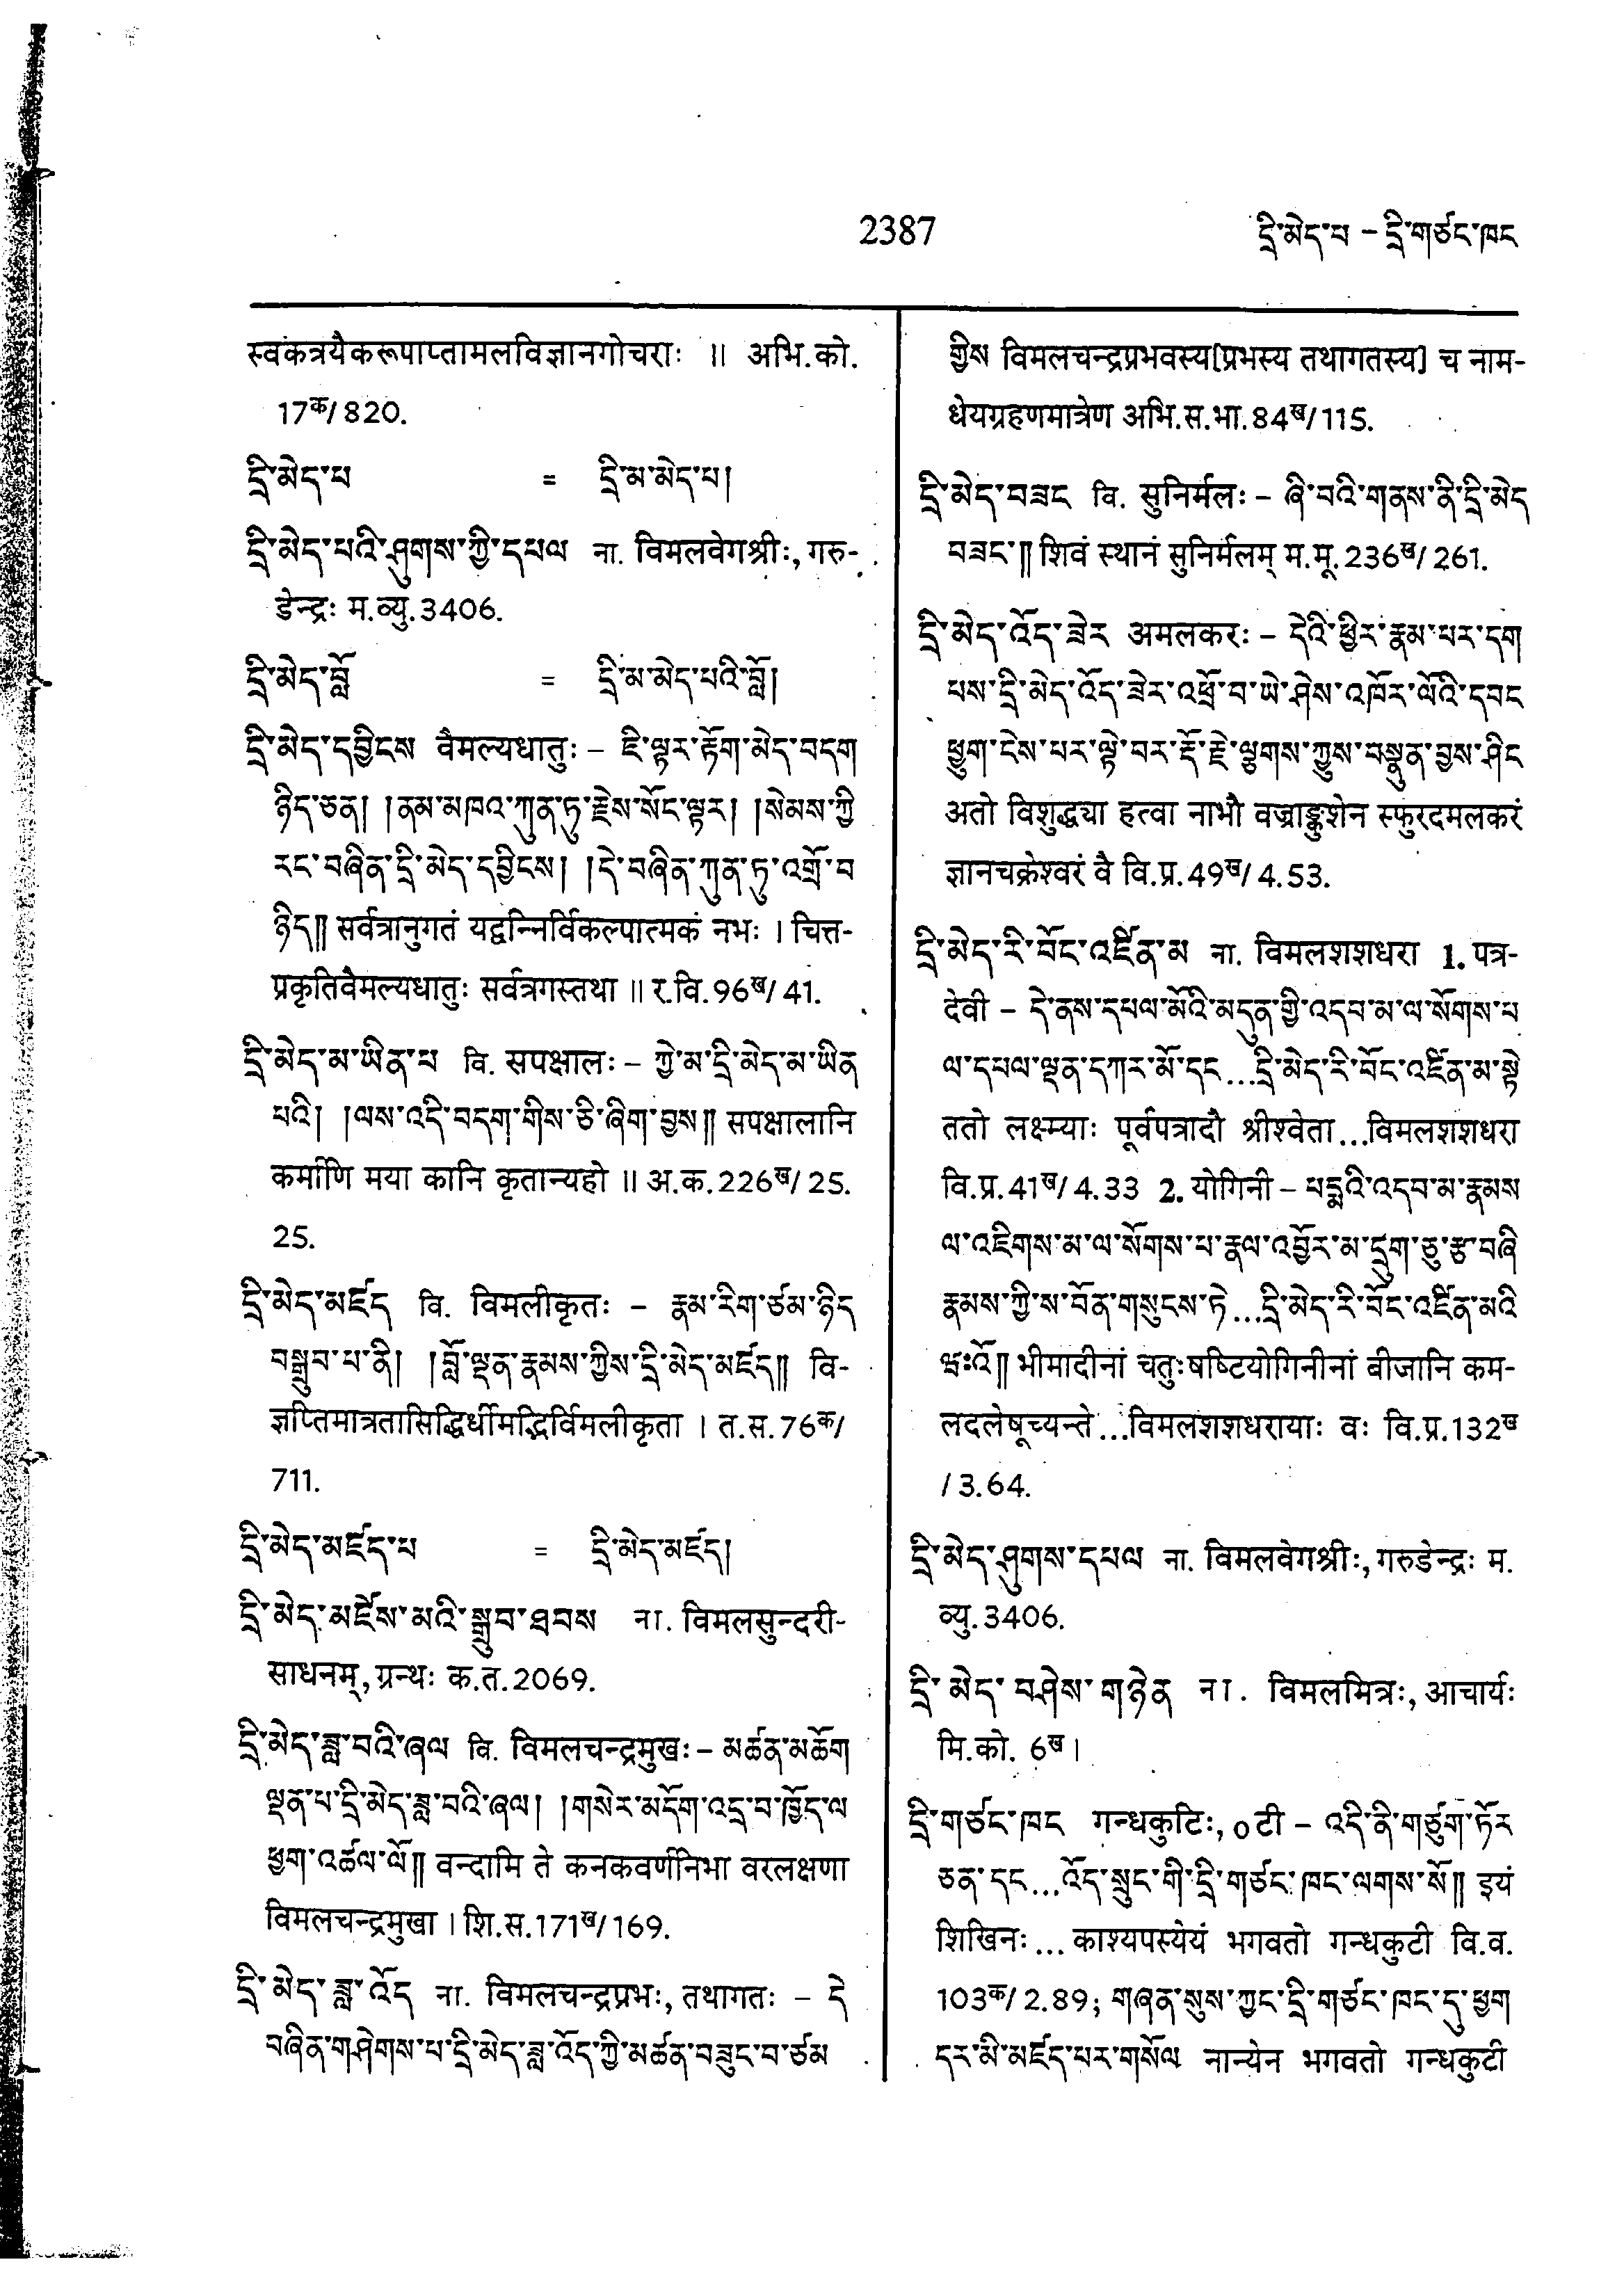 2387
དྲི་མེད་པ – དྲི་གཙང་ཁང
स्वकत्रयैकरूपाप्तामलविज्ञानगोचराः ॥ अभि.को.
17क/820.
དྲི་མེད་པ = དྲི་མ་མེད་པ།
དྲི་མེད་པའི་ཤུགས་ཀྱི་དཔལ ना. विमलवेगश्रीः, गरु-
डेन्द्रः म.व्यु.3406.
དྲི་མེད་བློ = དྲི་མ་མེད་པའི་བློ།
དྲི་མེད་དབྱིངས वैमल्यधातुः – ཇི་ལྟར་རྟོག་མེད་བདག
ཉིད་ཅན། །ནམ་མཁའ་ཀུན་ཏུ་རྗེས་སོང་ལྟར། །སེམས་ཀྱི
རང་བཞིན་དྲི་མེད་དབྱིངས། །དེ་བཞིན་ཀུན་ཏུ་འགྲོ་བ
ཉིད།། सर्वत्रानुगतं यद्वन्निर्विकल्पात्मकं नभः । चित्त-
प्रकृतिवैमल्यधातुः सर्वत्रगस्तथा ॥ र.वि.96ख/41.
དྲི་མེད་མ་ཡིན་པ वि. सपक्षालः – ཀྱེ་མ་དྲི་མེད་མ་ཡིན
པའི། །ལས་འདི་བདག་གིས་ཅི་ཞིག་བྱས།། सपक्षालानि
कर्माणि मया कानि कृतान्यहो ॥ अ.क.226ख/25.
25.
དྲི་མེད་མཛད वि. विमलीकृतः – རྣམ་རིག་ཙམ་ཉིད
བསྒྲུབ་པ་ནི། །བློ་ལྡན་རྣམས་ཀྱིས་དྲི་མེད་མཛད།། वि-
ज्ञप्तिमात्रतासिद्धिर्धीमद्भिर्विमलीकृता । त.स.76क/
711.
དྲི་མེད་མཛད་པ = དྲི་མེད་མཛད།
དྲི་མེད་མཛེས་མའི་སྒྲུབ་ཐབས ना. विमलसुन्दरी-
साधनम्, ग्रन्थः क.त.2069.
དྲི་མེད་ཟླ་བའི་ཞལ वि. विमलचन्द्रमुखः – མཚན་མཆོག
ལྡན་པ་དྲི་མེད་ཟླ་བའི་ཞལ། །གསེར་མདོག་འདྲ་བ་ཁྱོད་ལ
ཕྱག་འཚལ་ལོ།། वन्दामि ते कनकवर्णनिभा वरलक्षणा
विमलचन्द्रमुखा । शि.स.171ख/169.
དྲི་མེད་ཟླ་འོད ना. विमलचन्द्रप्रभः, तथागतः – དེ
བཞིན་གཤེགས་པ་དྲི་མེད་ཟླ་འོད་ཀྱི་མཚན་བཟུང་བ་ཙམ
གྱིས विमलचन्द्रप्रभवस्य[प्रभस्य तथागतस्य] च नाम-
धेयग्रहणमात्रेण अभि.स.भा.84ख/115.
དྲི་མེད་བཟང वि. सुनिर्मलः – ཞི་བའི་གནས་ནི་དྲི་མེད
བཟང་།། शिवं स्थानं सुनिर्मलम् म.मू.236ख/261.
དྲི་མེད་འོད་ཟེར अमलकरः – དེའི་ཕྱིར་རྣམ་པར་དག
པས་དྲི་མེད་འོད་ཟེར་འཕྲོ་བ་ཡེ་ཤེས་འཁོར་ལོའི་དབང
ཕྱུག་ངེས་པར་ལྟེ་བར་རྡོ་རྗེ་ལྕགས་ཀྱུས་བསྣུན་བྱས་ཤིང
अतो विशुद्ध्या हत्वा नाभौ वज्राङ्कुशेन स्फुरदमलकरं
ज्ञानचक्रेश्वरं वै वि.प्र.49ख/4.53.
དྲི་མེད་རི་བོང་འཛིན་མ ना. विमलशशधरा 1. पत्र-
देवी – དེ་ནས་དཔལ་མོའི་མདུན་གྱི་འདབ་མ་ལ་སོགས་པ
ལ་དཔལ་ལྡན་དཀར་མོ་དང...དྲི་མེད་རི་བོང་འཛིན་མ་སྟེ
ततो लक्ष्म्याः पूर्वपत्रादौ श्रीश्वेता...विमलशशधरा
वि.प्र.41ख/4.33 2. योगिनी – པདྨའི་འདབ་མ་རྣམས
ལ་འཇིགས་མ་ལ་སོགས་པ་རྣལ་འབྱོར་མ་དྲུག་ཅུ་རྩ་བཞི
རྣམས་ཀྱི་ས་བོན་གསུངས་ཏེ...དྲི་མེད་རི་བོང་འཛིན་མའི
ཝཿའོ།། भीमादीनां चतुःषष्टियोगिनीनां बीजानि कम-
लदलेषूच्यन्ते...विमलशशधरायाः वः वि.प्र.132ख
/3.64.
དྲི་མེད་ཤུགས་དཔལ ना. विमलवेगश्रीः, गरुडेन्द्रः म.
व्यु.3406.
དྲི་མེད་བཤེས་གཉེན ना. विमलमित्रः, आचार्यः
मि.को. 6ख।
དྲི་གཙང་ཁང गन्धकुटिः, ०टी – འདི་ནི་གཙུག་ཏོར
ཅན་དང...འོད་སྲུང་གི་དྲི་གཙང་ཁང་ལགས་སོ།། इयं
शिखिनः... काश्यपस्येयं भगवतो गन्धकुटी वि.व.
103क/2.89; གཞན་སུས་ཀྱང་དྲི་གཙང་ཁང་དུ་ཕྱག
དར་མི་མཛད་པར་གསོལ नान्येन भगवतो गन्धकुटी